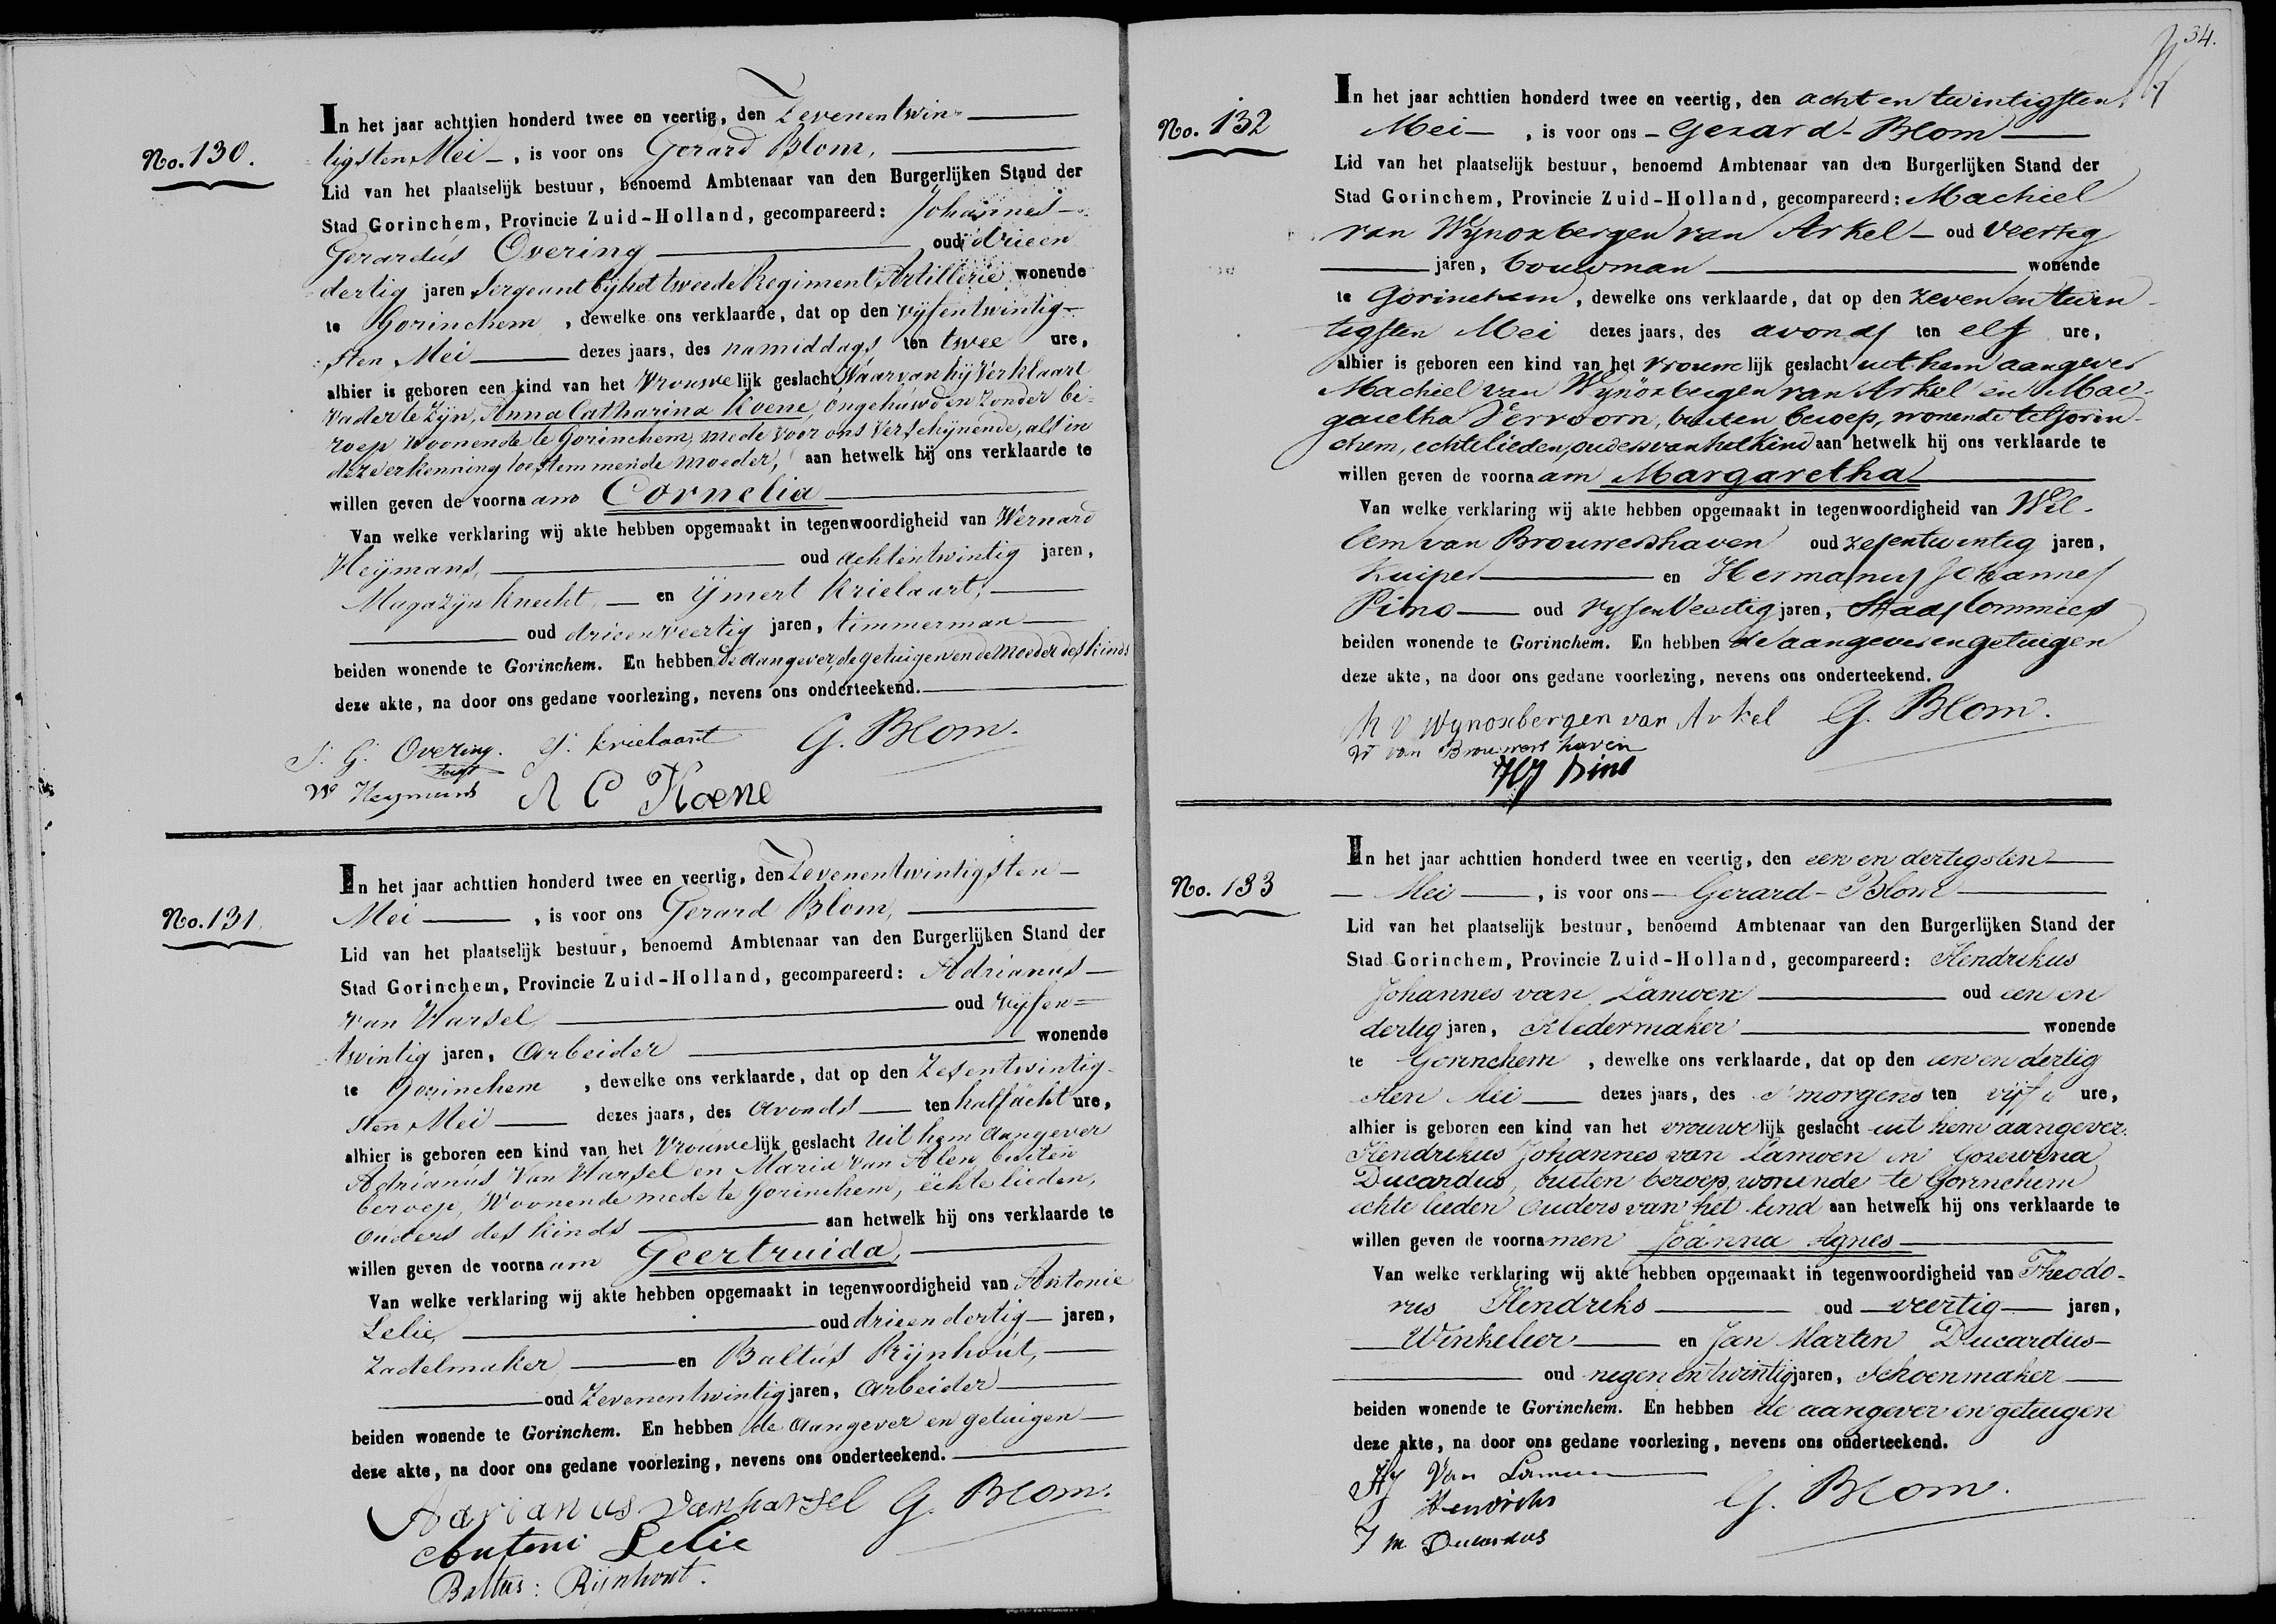 No. 130.
In het jaar achttien honderd twee en veertig, den Zevenentwin-
tigsten Mei, is voor ons Gerard Blom,
Lid van het plaatselijk bestuur, benoemd Ambtenaar van den Burgerlijken Stand der
Stad Gorinchem, Provincie Zuid-Holland, gecompareerd: Johannes
Gerardus Overing oud drieen
dertig jaren Sergeant bij het tweede Regiment Artillerie wonende
te Gorinchem, dewelke ons verklaarde, dat op den vijfentwintig-
sten Mei dezes jaars, des namiddags ten twee ure,
alhier is geboren een kind van het Vrouwelijk geslacht, Waarvan hij Verklaart
Vader te Zijn, Anna Catharina Koene, Ongehuwd en Zonder be-
roep Woonende te Gorinchem, mede voor ons Verschijnende, als in
deze erkenning toestemmende Moeder, aan hetwelk hij ons verklaarde te
willen geven de voornaam Cornelia
Van welke verklaring wij akte hebben opgemaakt in tegenwoordigheid van Wernard
Heijmans, oud achtentwintig jaren,
Magazijn Knecht, en Ijmert Krielaart,
oud drieenveertig jaren, timmerman
beiden wonende te Gorinchem. En hebben de Aangever, de getuigen en de Moeder des Kinds
deze akte, na door ons gedane voorlezing, nevens ons onderteekend.
J. G. Overing. IJ. Krielaart G. Blom.
W Heymans A C Koene
No. 131.
In het jaar achttien honderd twee en veertig, den Zevenentwintigsten
Mei, is voor ons Gerard Blom,
Lid van het plaatselijk bestuur, benoemd Ambtenaar van den Burgerlijken Stand der
Stad Gorinchem, Provincie Zuid-Holland, gecompareerd: Adrianus
van Harsel oud Vijfen=
twintig jaren, Arbeider wonende
te Gorinchem, dewelke ons verklaarde, dat op den Zesentwintig-
sten Mei dezes jaars, des Avonds ten half acht ure,
alhier is geboren een kind van het Vrouwelijk geslacht Uit hem Aangever
Adrianus Van Harsel en Maria van Alen, buiten
beroep, Woonende mede te Gorinchem, echte lieden,
Ouders des Kinds aan hetwelk hij ons verklaarde te
willen geven de voornaam Geertruida,
Van welke verklaring wij akte hebben opgemaakt in tegenwoordigheid van Antonie
Lelie, oud drieendertig jaren,
Zadelmaker en Baltus Rijnhout,
oud Zevenentwintig jaren, Arbeider
beiden wonende te Gorinchem. En hebben de Aangever en getuigen
deze akte, na door ons gedane voorlezing, nevens ons onderteekend.
Adrianus van harsel G. Blom.
Antoni Lelie
Baltus: Rijnhout.
34.
No. 132
In het jaar achttien honderd twee en veertig, den acht en twintigsten
Mei, is voor ons Gerard Blom
Lid van het plaatselijk bestuur, benoemd Ambtenaar van den Burgerlijken Stand der
Stad Gorinchem, Provincie Zuid-Holland, gecompareerd: Machiel
van Wijnoxbergen van Arkel oud veertig
jaren, bouwman wonende
te Gorinchem, dewelke ons verklaarde, dat op den zeven en twin-
tigsten Mei dezes jaars, des avonds ten elf ure,
alhier is geboren een kind van het vrouwelijk geslacht uit hem aangever
Machiel van Wijnoxbergen van Arkel en Mar-
garetha Vervoorn, buiten beroep, wonende te Gorin-
chem, echtelieden, ouders van het kind aan hetwelk hij ons verklaarde te
willen geven de voornaam Margaretha
Van welke verklaring wij akte hebben opgemaakt in tegenwoordigheid van Wil-
lem van Brouwershaven oud zesentwintig jaren,
Kuiper en Hermanus Johannes
Pino oud vijfenveertig jaren, Stads Commies
beiden wonende te Gorinchem. En hebben de aangever en getuigen
deze akte, na door ons gedane voorlezing, nevens ons onderteekend.
M v Wynoxbergen van Arkel G. Blom.
W van Brouwers haven
HJ Pino
No. 133
In het jaar achttien honderd twee en veertig, den een en dertigsten
Mei, is voor ons Gerard Blom
Lid van het plaatselijk bestuur, benoemd Ambtenaar van den Burgerlijken Stand der
Stad Gorinchem, Provincie Zuid-Holland, gecompareerd: Hendrikus
Johannes van Lamoen oud een en
dertig jaren, Kledermaker wonende
te Gorinchem, dewelke ons verklaarde, dat op den een en dertig
sten Mei dezes jaars, des s'morgens ten vijf ure,
alhier is geboren een kind van het vrouwelijk geslacht uit hem aangever.
Hendrikus Johannes van Lamoen en Gozewina
Ducardus, buiten beroep, wonende te Gorinchem
echte lieden Ouders van het kind aan hetwelk hij ons verklaarde te
willen geven de voornamen Joanna Agnes
Van welke verklaring wij akte hebben opgemaakt in tegenwoordigheid van Theodo-
rus Hendriks oud veertig jaren,
Winkelier en Jan Martin Ducardus
oud negen en twintig jaren, Schoenmaker
beiden wonende te Gorinchem. En hebben de aangever en getuigen
deze akte, na door ons gedane voorlezing, nevens ons onderteekend.
HJ Van Lamoen
Hendriks G. Blom.
J M Ducardus